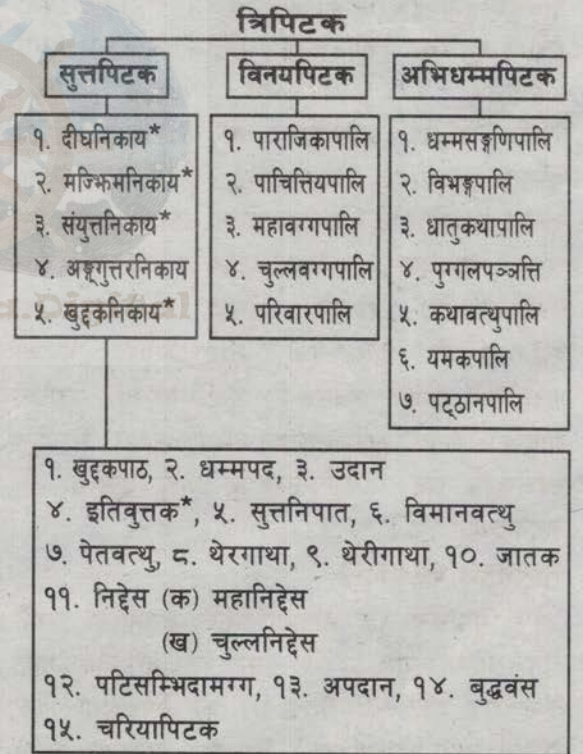 त्रिपिटक
सुत्तपिटक
विनयपिटक
अभिधम्मपिटक
१. दीघनिकाय*
२. मज्झिमनिकाय*
३. संयुत्तनिकाय*
४. अङ्गुत्तरनिकाय
५. खुद्दकनिकाय*
१. पाराजिकापालि
२. पाचित्तियपालि
३. महावग्गपालि
४. चुल्लवग्गपालि
५. परिवारपालि
१. धम्मसङ्गणिपालि
२. विभङ्गपालि
३. धातुकथापालि
४. पुग्गलपञ्ञत्ति
५. कथावत्थुपालि
६. यमकपालि
७. पट्ठानपालि
१. खुद्दकपाठ, २. धम्मपद, ३. उदान
४. इतिवुत्तक*, ५. सुत्तनिपात, ६. विमानवत्थु
७. पेतवत्थु, ८. थेरगाथा, ९. थेरीगाथा, १०. जातक
११. निद्देस (क) महानिद्देस
(ख) चुल्लनिद्देस
१२. पटिसम्भिदामग्ग, १३. अपदान, १४. बुद्धवंस
१५. चरियापिटक